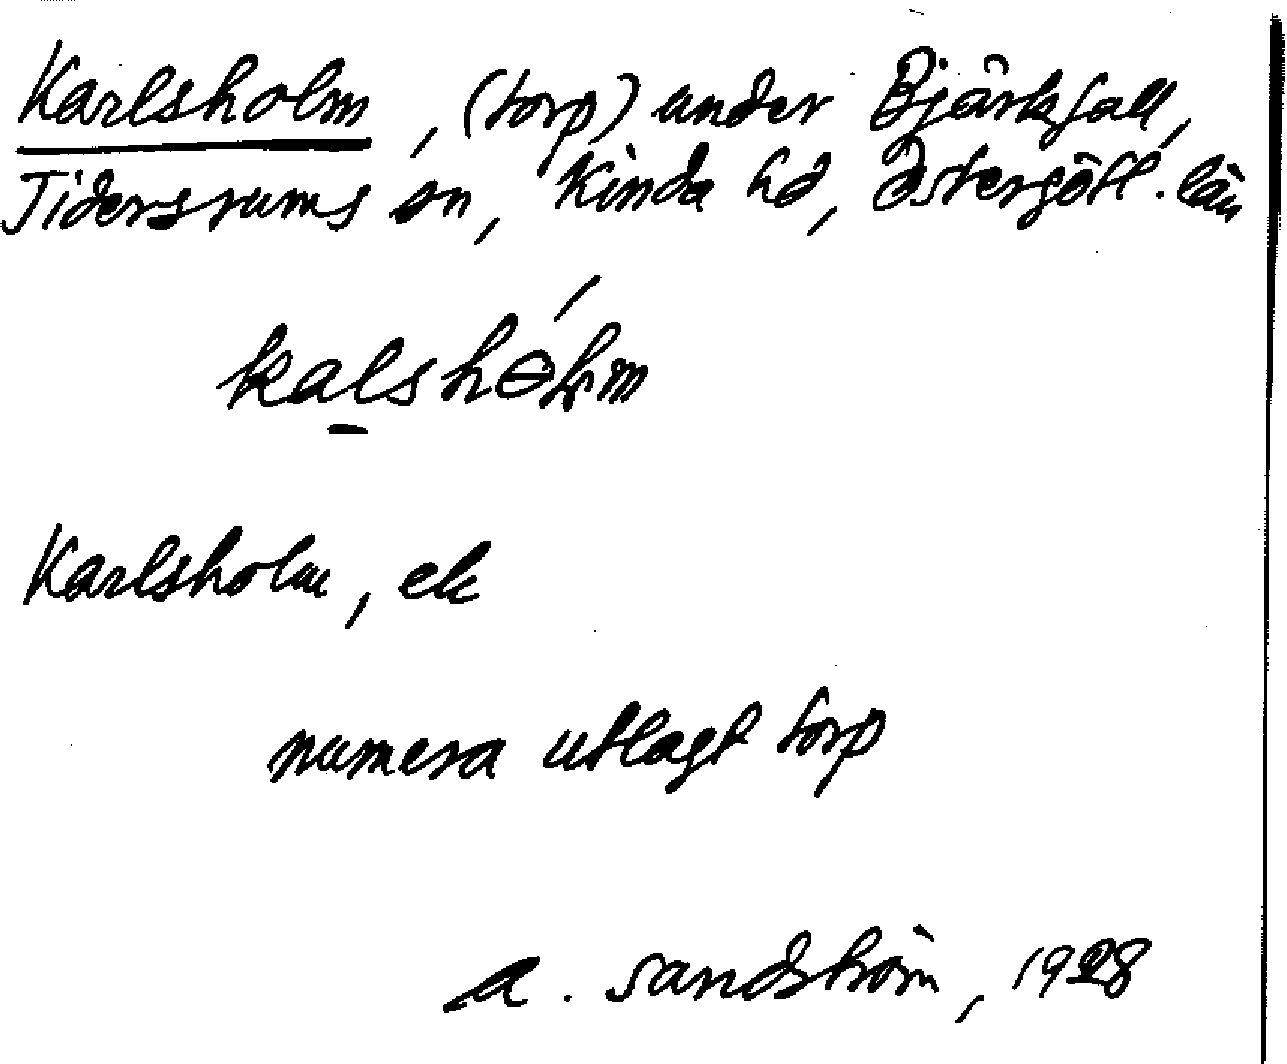 Karlsholm, (torp) under Björkfall,
Tidersrums sn, Kinda hd, Östergötl. län
Karlsholm, ek
numera utlagt torp
A. Sandström, 1928